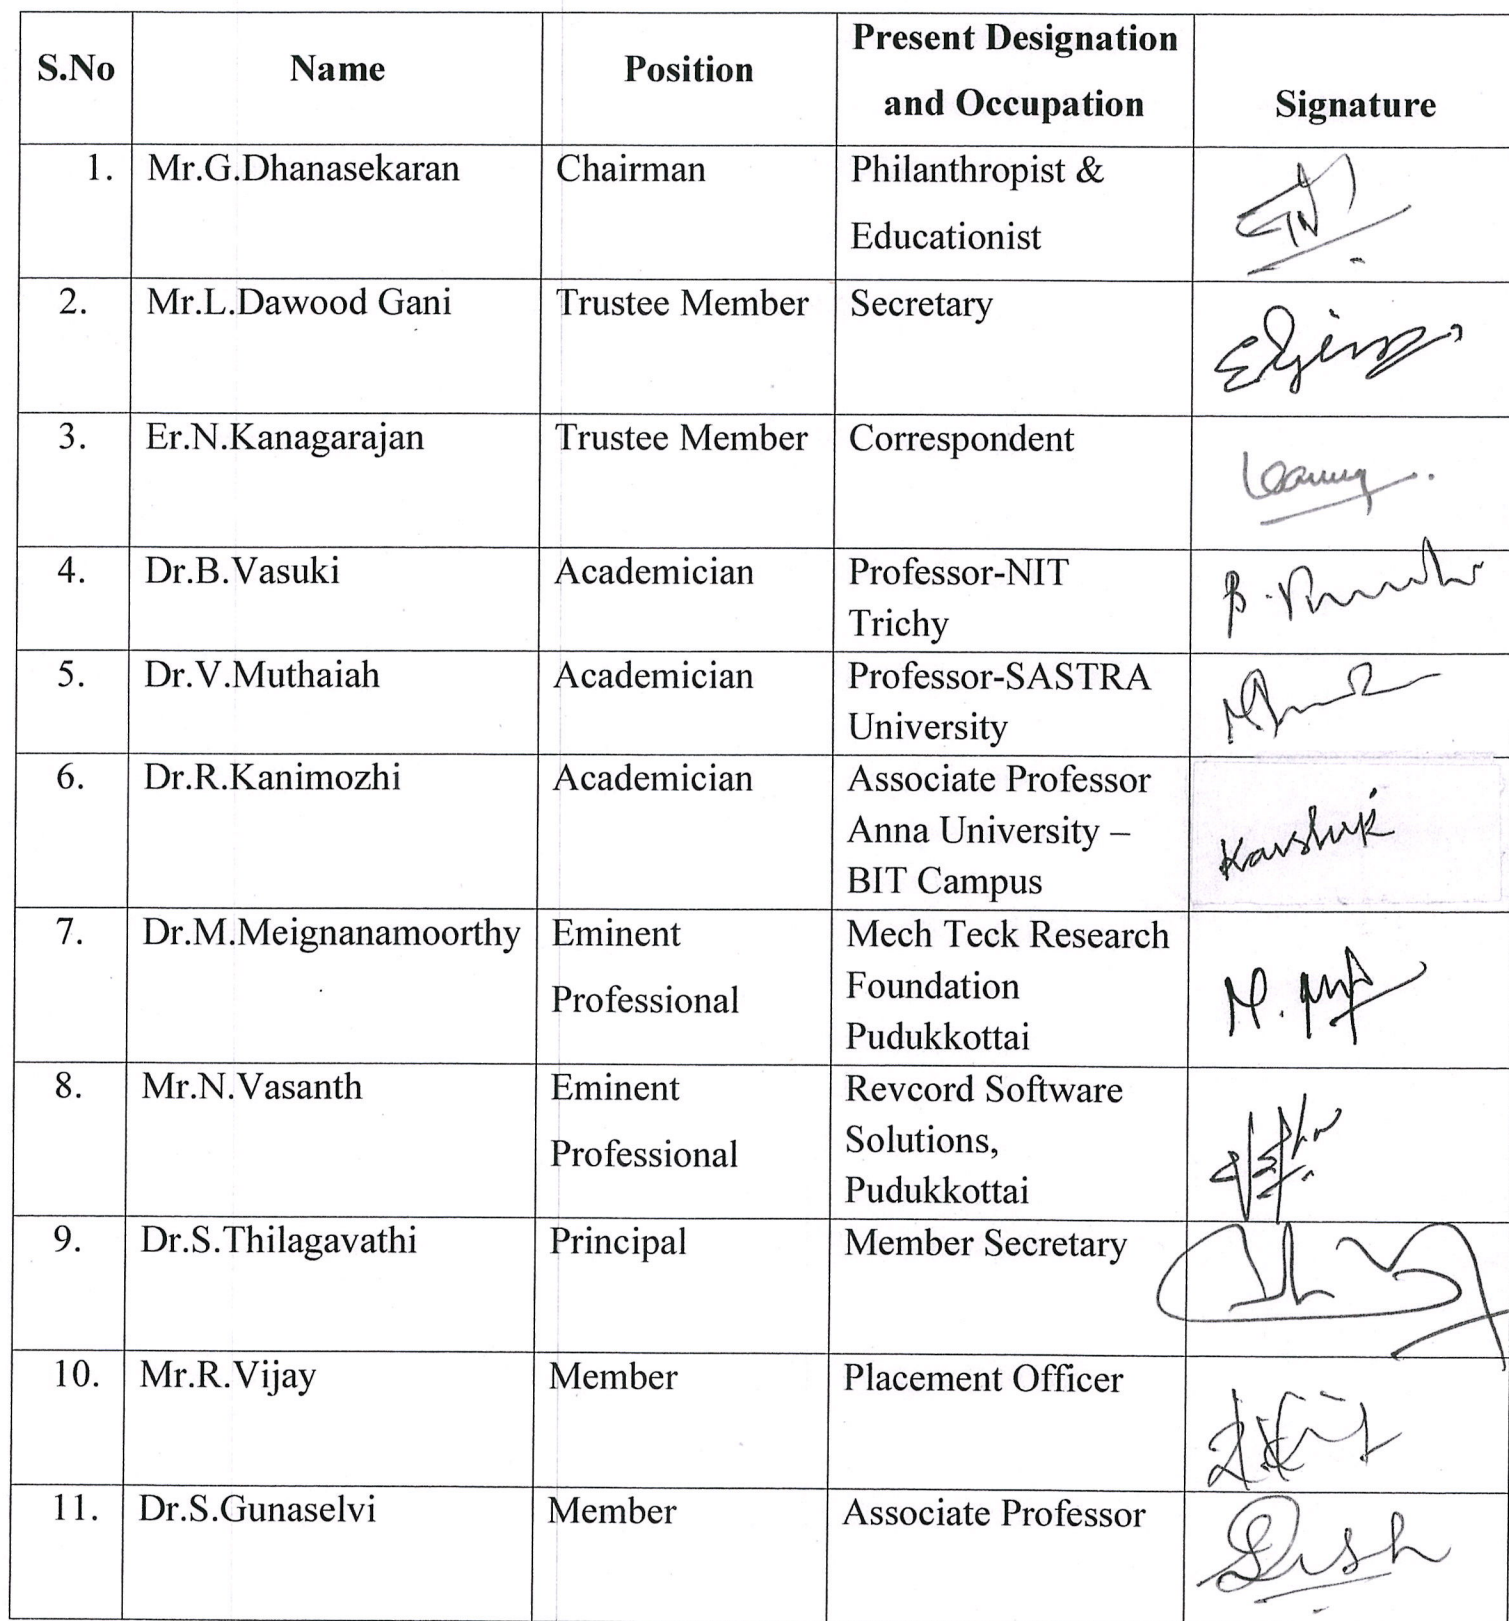 S.No Name Position Present Designation
and Occupation Signature
1. Mr.G.Dhanasekaran Chairman Philanthropist &
Educationist
2. Mr.L.Dawood Gani Trustee Member Secretary
3. Er.N.Kanagarajan Trustee Member Correspondent
4. Dr.B.Vasuki Academician Professor-NIT
Trichy
5. Dr.V.Muthaiah Academician Professor-SASTRA
University
6. Dr.R.Kanimozhi Academician Associate Professor
Anna University –
BIT Campus
7. Dr.M.Meignanamoorthy Eminent Mech Teck Research
Professional Foundation
Pudukkottai
8. Mr.N.Vasanth Eminent Revcord Software
Professional Solutions,
Pudukkottai
9. Dr.S.Thilagavathi Principal Member Secretary
10. Mr.R.Vijay Member Placement Officer
11. Dr.S.Gunaselvi Member Associate Professor